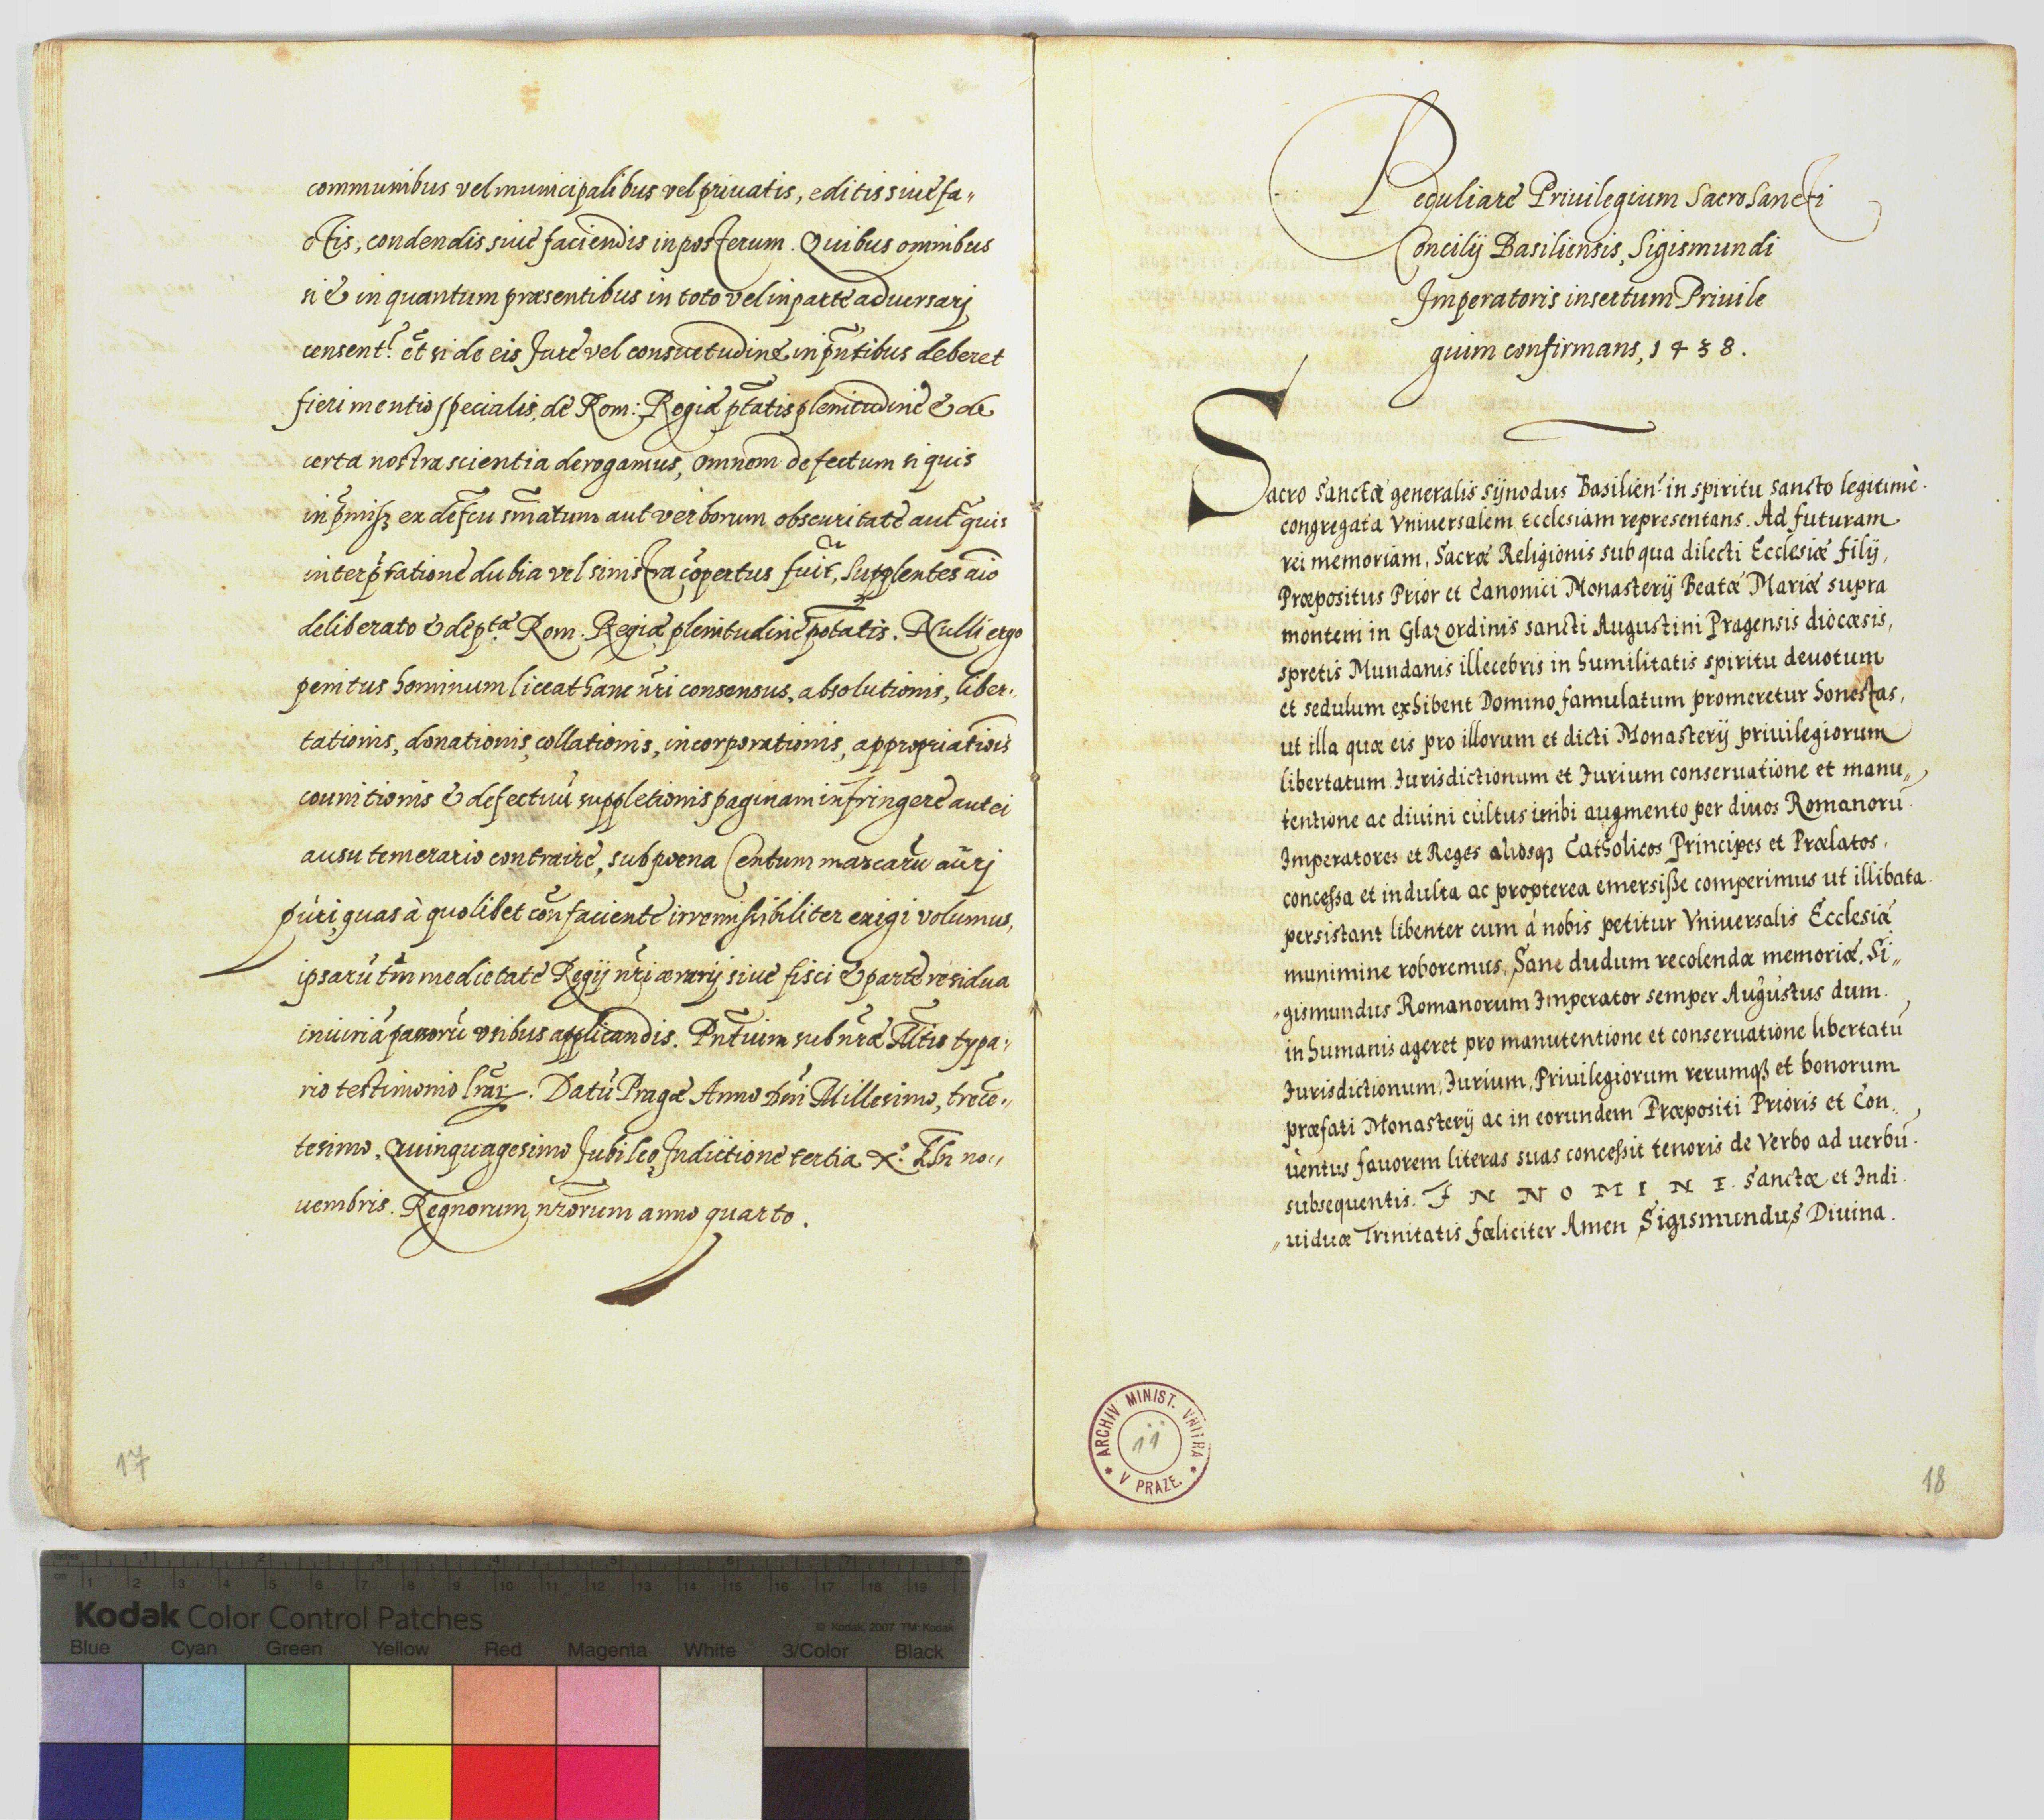 communibus vel municipalibus vel priuatis, editis siue fa„
ctis, condendis siue faciendis in posterum. Quibus omnibus
si & in quantum præsentibus in toto vel in parte aduersarj
censent.r et si de eis Jure vel consuetudine in pn̄tibus deberet
fieri mentio specialis, de Rom: Regiæ ptātis plenitudine & de
certa nostra scientia derogamus, omnem defectum si quis
in p̄miss ex defc̄u sm̄atum aut verborum obscuritate aut quis
interp̄tatione dubia vel sinistra cōpertus fuit, supplentes aīo
deliberato & de p.tæ Rom. Regiæ plenitudine potātis. Nulli ergo
penitus hominum liceat hanc nr̄i consensus, absolutionis, liber„
tationis, donationis, collationis, incorporationis, appropriatiōis
counitionis & defectuū suppletionis paginam infringere aut ei
ausu temerario contraire, sub pœna Centum marcarū aurj
puri, quas à quolibet con̄faciente irremissibiliter exigi volumus,
ipsarū tm̄ medietate Regij nr̄i ærarij siue fisci & parte residua
iniuriā passorū vsibus applicandis. Pn̄tium sub nr̄æ Mtis typa„
rio testimonio lr̄ar. Datū Pragæ Anno Dn̄i Millesimo, trecē„
tesimo, Quinquagesimo Jubileo, Indictione tertia x.o Kln no„
uembris. Regnorum nr̄orum anno quarto.
17
Peculiare Priuilegium SacroSancti
Concilij Basiliensis, Sigismundi
Imperatoris insertum Priuile
gium confirmans, 1438.
Sacro Sancta generalis Sÿnodus Basilien: in spiritu sancto legitimè
congregata Vniuersalem Ecclesiam representans. Ad futuram
rei memoriam. Sacræ Religionis sub qua dilecti Ecclesiæ filij,
Præpositus Prior et Canonici Monasterij Beatæ Mariæ supra
montem in Glaz ordinis sancti Augustini Pragensis diocæsis,
spretis Mundanis illecebris in humilitatis spiritu deuotum
et sedulum exhibent Domino famulatum promeretur honestas,
ut illa quæ eis pro illorum et dicti Monasterij priuilegiorum
libertatum Iurisdictionum et Iurium conseruatione et manu„
tentione ac diuini cultus inibi augmento per diuos Romanorū
Imperatores et Reges aliosqꝫ Catholicos Principes et Prælatos,
concessa et indulta ac propterea emersisse comperimus ut illibata
persistant libenter cum à nobis petitur Vniuersalis Ecclesiæ
munimine roboremus. Sane dudum recolendæ memoriæ, Si„
„gismundus Romanorum Imperator semper Augustus dum
in humanis ageret pro manutentione et conseruatione libertatū
Iurisdictionum, Iurium, Priuilegiorum rerumqꝫ et bonorum
præfati Monasterij ac in eorundem Præpositi Prioris et Con„
uentus fauorem literas suas concessit tenoris de verbo ad uerbū
subsequentis. I N NOMINI. Sanctæ et Indi
„uiduæ Trinitatis fæliciter Amen Sigismundus Diuina
ARCHIV MINIST. VNITRA
11
* V PRAZE. *
18
inches 1 2 3 4 5 6 7 8
cm 1 2 3 4 5 6 7 8 9 10 11 12 13 14 15 16 17 18 19
Kodak Color Control Patches
© Kodak, 2007 TM: Kodak
Blue Cyan Green Yellow Red Magenta White 3/Color Black